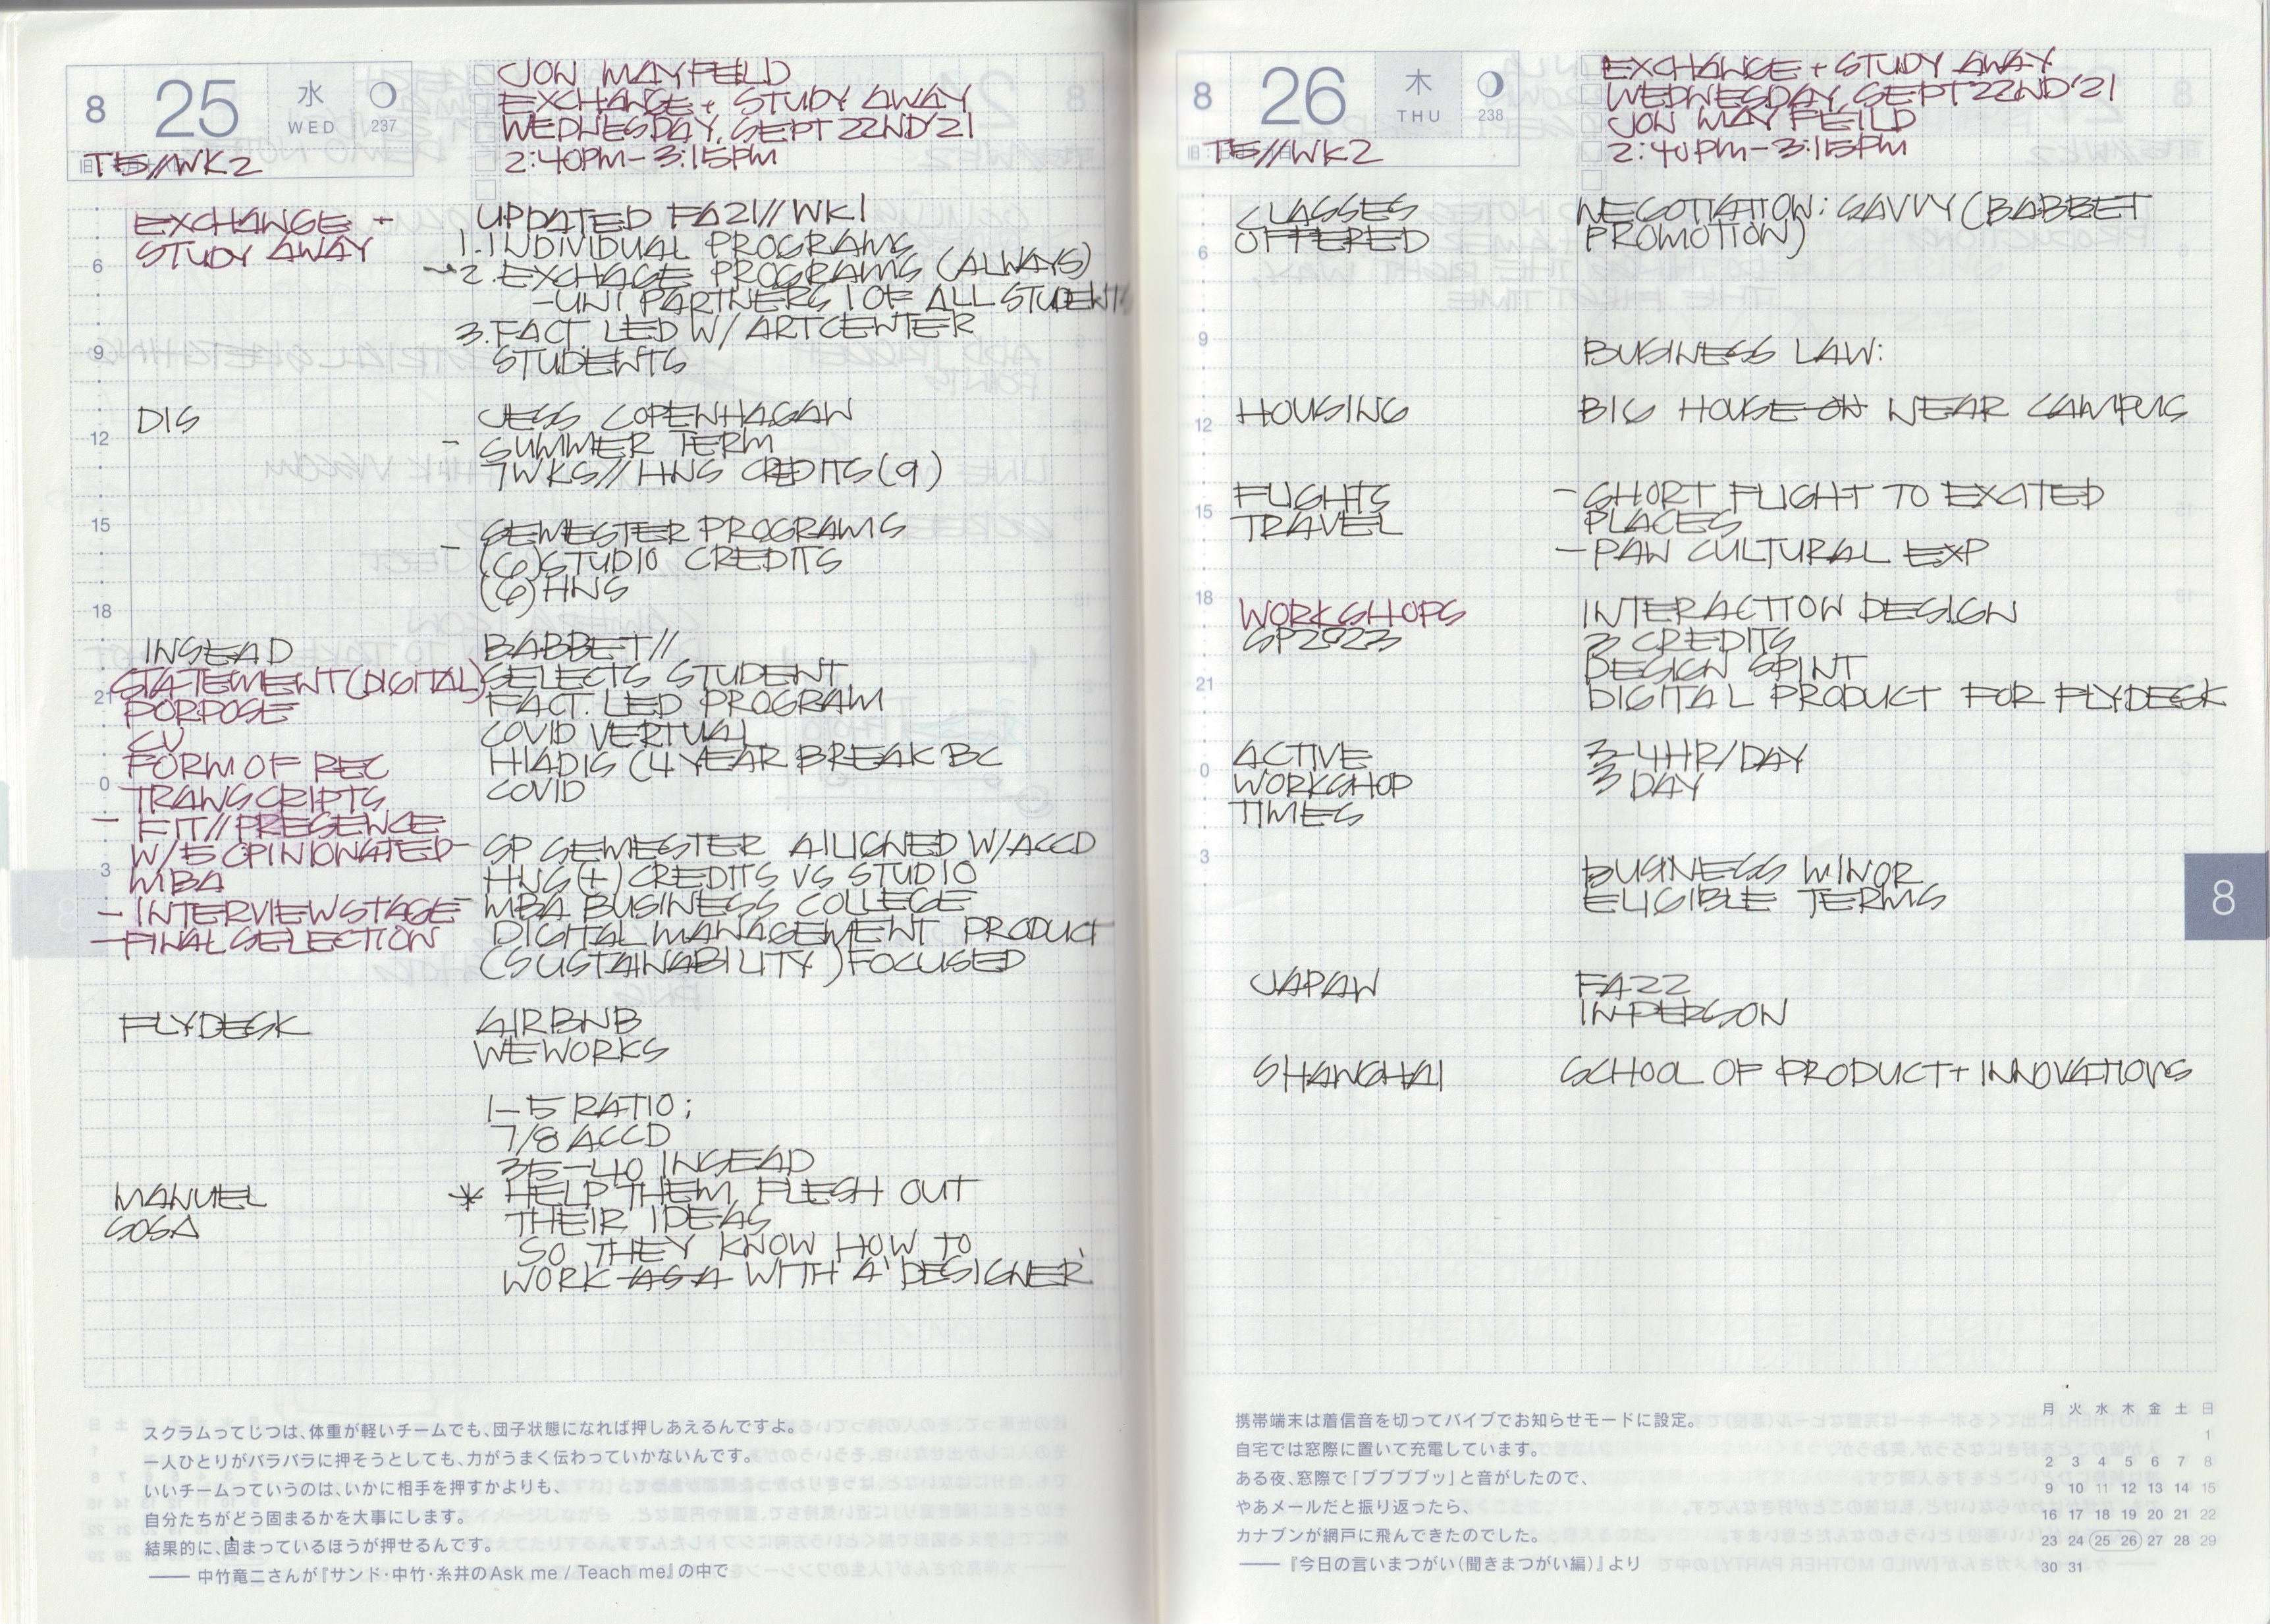 8 25 水 WED 237
T5//WK2
JON MAYFEILD
EXCHANGE + STUDY AWAY
WEDNESDAY, SEPT 22ND'21
2:40PM-3:15PM
EXCHANGE +
STUDY AWAY
UPDATED FA21//WK1
1. INDIVIDUAL PROGRAMS
~2. EXCHAGE PROGRAMS (ALWAYS)
-UNI PARTNERS 1 OF ALL STUDENTS
3. FACT. LED W/ ARTCENTER
STUDENTS
6
9
DIS
JESS COPENHAGAN
- SUMMER TERM
7WKS// HNS CREDITS (9)
12
- SEMESTER PROGRAMS
(6) STUDIO CREDITS
(6) HNS
15
18
INSEAD
STATEMENT (DIGITAL)
PORPOSE
CV
FORM OF REC
TRANSCRIPTS
- FIT// PRESENCE
W/ 5 OPINIONATED
MBA
- INTERVIEW STAGE
- FINAL SELECTION
21
0
3
BABBET//
SELECTS STUDENT
FACT. LED PROGRAM
COVID VERTUAL
HIADIS (4 YEAR BREAK BC
COVID
- SP SEMESTER ALIGNED W/ACCD
HNS (+) CREDITS VS STUDIO
- MBA BUSINESS COLLEGE
DIGITAL MANAGEMENT PRODUCT
(SUSTAINABILITY) FOCUSED
FLYDESK
AIRBNB
WEWORKS
1-5 RATIO;
7/8 ACCD
35-40 INSEAD
MANUEL
SOSA
* HELP THEM, FLESH OUT
THEIR IDEAS
SO THEY KNOW HOW TO
WORK AS A WITH A 'DESIGNER'
スクラムってじつは、体重が軽いチームでも、団子状態になれば押しあえるんですよ。
一人ひとりがバラバラに押そうとしても、力がうまく伝わっていかないんです。
いいチームっていうのは、いかに相手を押すかよりも、
自分たちがどう固まるかを大事にします。
結果的に、固まっているほうが押せるんです。
── 中竹竜二さんが『サンド・中竹・糸井のAsk me / Teach me』の中で
8 26 木 THU 238
T5//WK2
EXCHANGE + STUDY AWAY
WEDNESDAY, SEPT 22ND'21
JON MAYFEILD
2:40PM-3:15PM
CLASSES
OFFERED
NEGOTIATION: SAVVY (BABBET
PROMOTION)
6
9
BUSINESS LAW:
HOUSING
BIG HOUSE ON NEAR CAMPUS
12
FLIGHTS
TRAVEL
- SHORT FLIGHT TO EXCITED
PLACES
- PAN CULTURAL EXP
15
18
WORKSHOPS
SP2023
INTERACTION DESIGN
3 CREDITS
DESIGN SPINT
DIGITAL PRODUCT FOR FLYDESK
21
ACTIVE
WORKSHOP
TIMES
3-4HR/DAY
3 DAY
0
3
BUSINESS MINOR
ELIGIBLE TERMS
8
JAPAN
FA22
IN-PERSON
SHANGHAI
SCHOOL OF PRODUCT + INNOVATIONS
携帯端末は着信音を切ってバイブでお知らせモードに設定。
自宅では窓際に置いて充電しています。
ある夜、窓際で「ブブブブッ」と音がしたので、
やあメールだと振り返ったら、
カナブンが網戸に飛んできたのでした。
── 『今日の言いまつがい（聞きまつがい編）』より
月 火 水 木 金 土 日
1
2 3 4 5 6 7 8
9 10 11 12 13 14 15
16 17 18 19 20 21 22
23 24 25 26 27 28 29
30 31